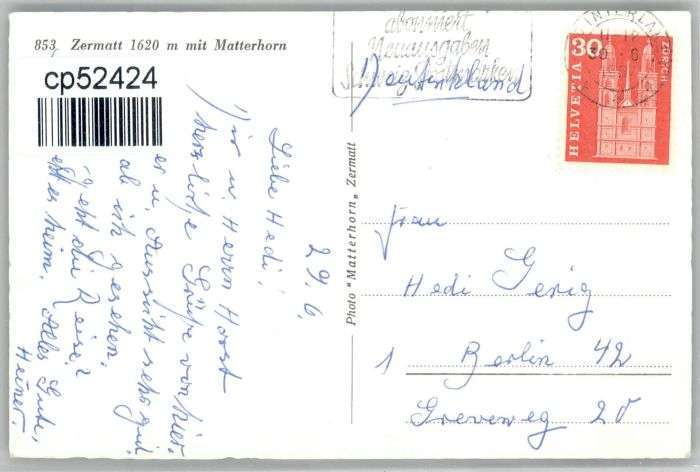 853 Zermatt 1620 m mit Matterhorn
cp52424
abonniert
Neuausgaben
INTERLA
30
HELVETIA
ZÜRICH
Photo "Matterhorn" Zermatt
29.6.
Liebe Hedi!
Dir u. Herrn Horst
herzliche Grüße von hier.
u. Aussicht sehr gut
ab ich gesehen.
geht die Reise?
heim. Alles Gute,
Heiner.
Frau
Hedi Gerig
1 Berlin 42
Greveweg 20